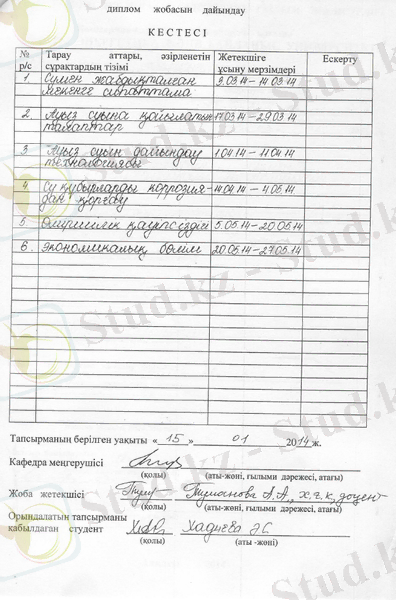 диплом жобасын дайындау
КЕСТЕСІ
№ р/с Тарау аттары, әзірленетін сұрақтардың тізімі Жетекшіге ұсыну мерзімдері Ескерту
1. Сумен жабдықталған 9.03.14 – 14.03.14
мекенге сипаттама
2. Ауыз суына қойылатын 17.03.14 – 29.03.14
талаптар
3 Ауыз суын дайындау 1.04.14 – 11.04.14
технологиясы
4. Су құбырларды коррозия- 14.04.14 – 4.05.14
дан қорғау
5. Өміршілік қауіпсіздігі 5.05.14 – 20.05.14
6. Экономикалық бөлім 20.05.14 – 27.05.14
Тапсырманың берілген уақыты «15» 01 2014 ж.
Кафедра меңгерушісі
(қолы) (аты-жөні, ғылыми дәрежесі, атағы)
Жоба жетекшісі Туманова А.А., х.ғ.к, доцент
(қолы) (аты-жөні, ғылыми дәрежесі, атағы)
Орындалатын тапсырманы
қабылдаған студент Хадиева Ә.С
(қолы) (аты -жөні)
Stud.kz - Stud.kz